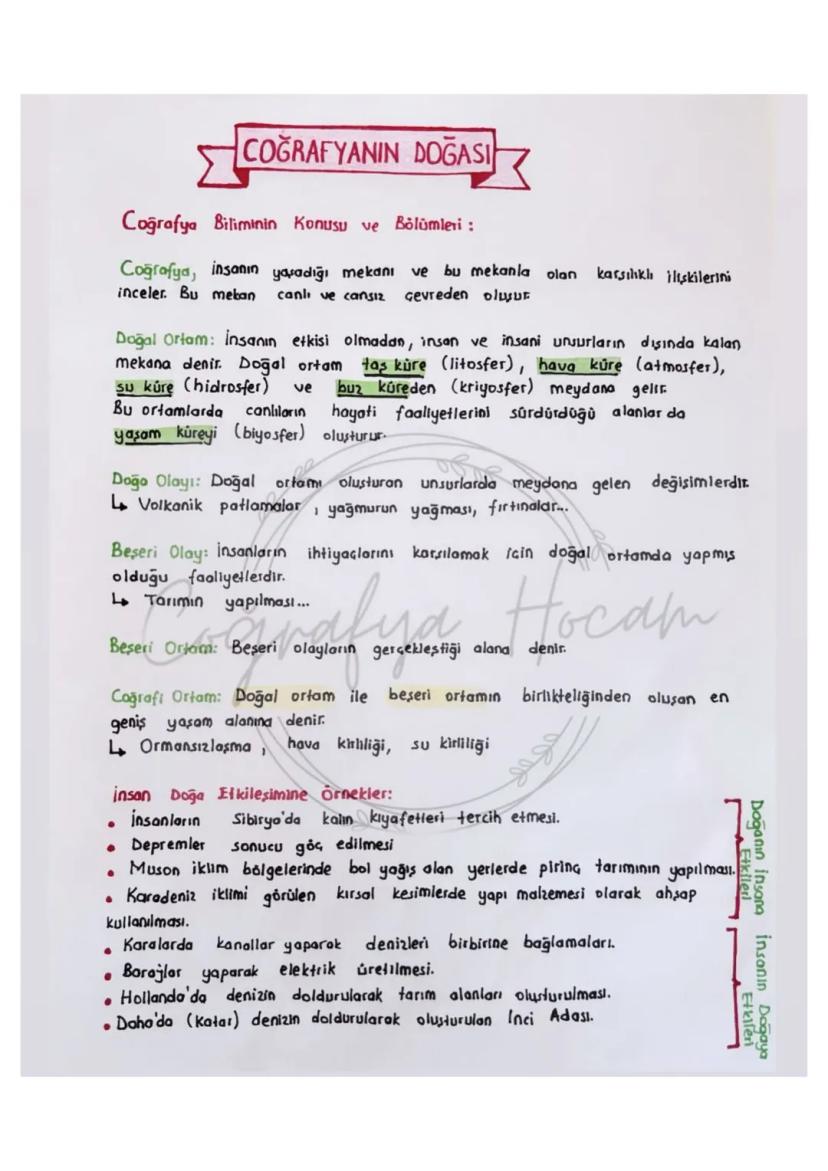 COĞRAFYANIN DOĞASI
Coğrafya Biliminin Konusu ve Bölümleri :
Coğrafya, insanın yaşadığı mekanı ve bu mekanla olan karşılıklı ilişkilerini
inceler. Bu mekan canlı ve cansız çevreden oluşur.
Doğal Ortam: İnsanın etkisi olmadan, insan ve insani unsurların dışında kalan
mekana denir. Doğal ortam taş küre (litosfer), hava küre (atmosfer),
su küre (hidrosfer) ve buz küreden (kriyosfer) meydana gelir.
Bu ortamlarda canlıların hayati faaliyetlerini sürdürdüğü alanlar da
yaşam küreyi (biyosfer) oluşturur.
Doğa Olayı: Doğal ortamı oluşturan unsurlarda meydana gelen değişimlerdir.
↳ Volkanik patlamalar, yağmurun yağması, fırtınalar...
Beşeri Olay: İnsanların ihtiyaçlarını karşılamak için doğal ortamda yapmış
olduğu faaliyetlerdir.
↳ Tarımın yapılması...
Coğrafya Hocam
Beşeri Ortam: Beşeri olayların gerçekleştiği alana denir.
Coğrafi Ortam: Doğal ortam ile beşeri ortamın birlikteliğinden oluşan en
geniş yaşam alanına denir.
↳ Ormansızlaşma, hava kirliliği, su kirliliği
İnsan Doğa Etkileşimine Örnekler:
• İnsanların Sibirya'da kalın kıyafetleri tercih etmesi.
• Depremler sonucu göç edilmesi
• Muson iklim bölgelerinde bol yağış alan yerlerde pirinç tarımının yapılması.
• Karadeniz iklimi görülen kırsal kesimlerde yapı malzemesi olarak ahşap
kullanılması.
• Karalarda kanallar yaparak denizleri birbirine bağlamaları.
• Barajlar yaparak elektrik üretilmesi.
• Hollanda'da denizin doldurularak tarım alanları oluşturulması.
• Doha'da (Katar) denizin doldurularak oluşturulan İnci Adası.
Doğanın İnsana
Etkileri
İnsanın Doğaya
Etkileri